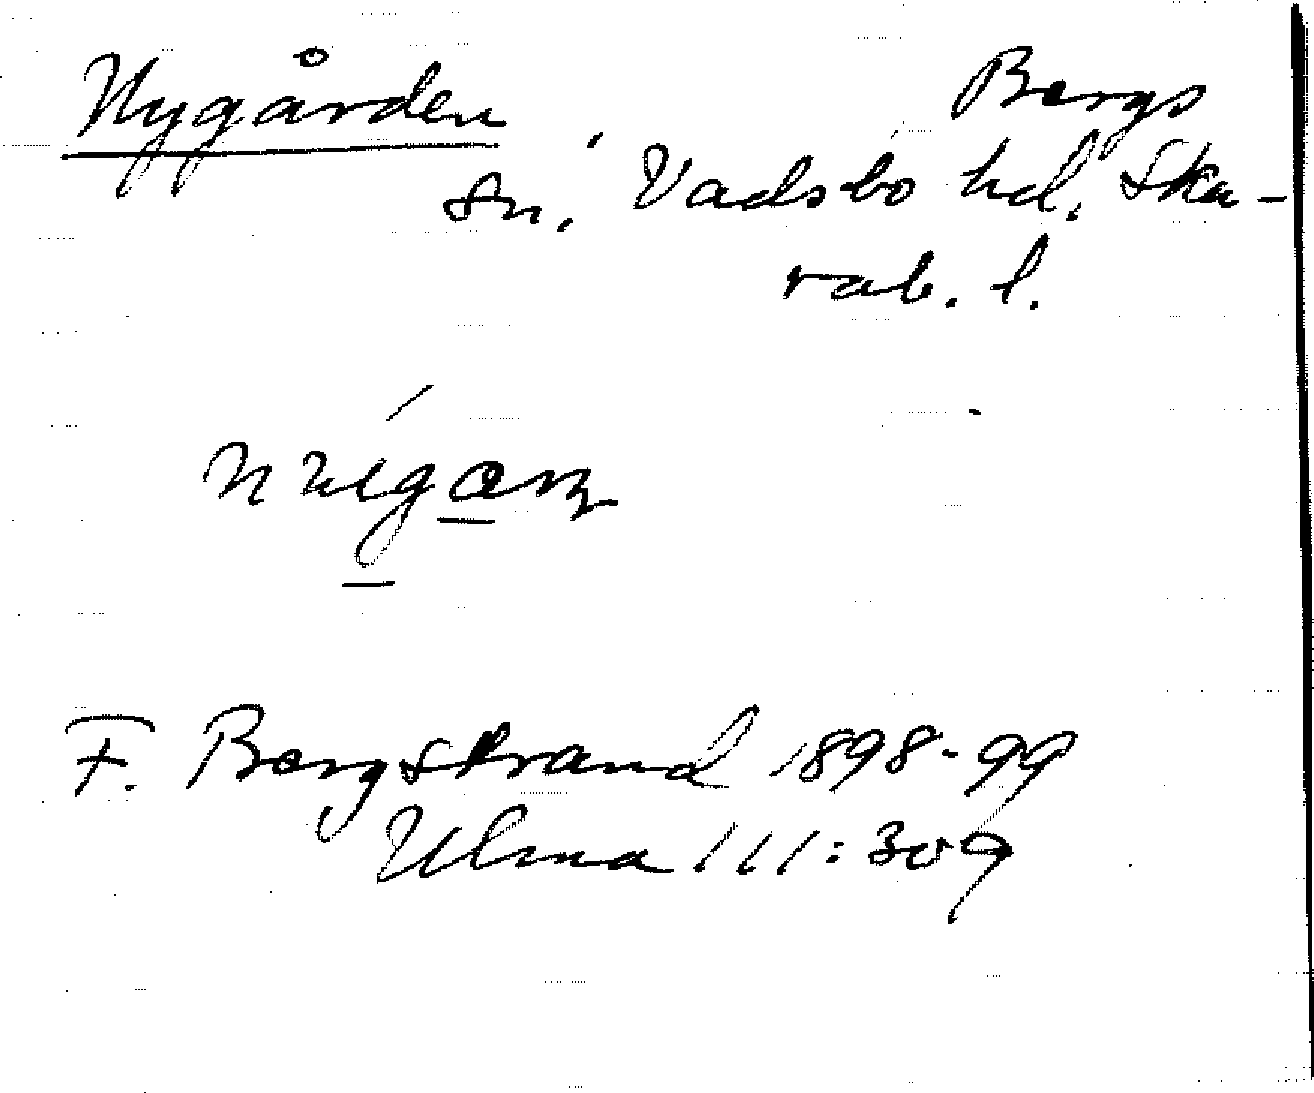 Nygården, Bergs
sn. Vadsbo hd. Ska-
rab. l.
F. Bergstrand 1898-99
Ulma 111:309